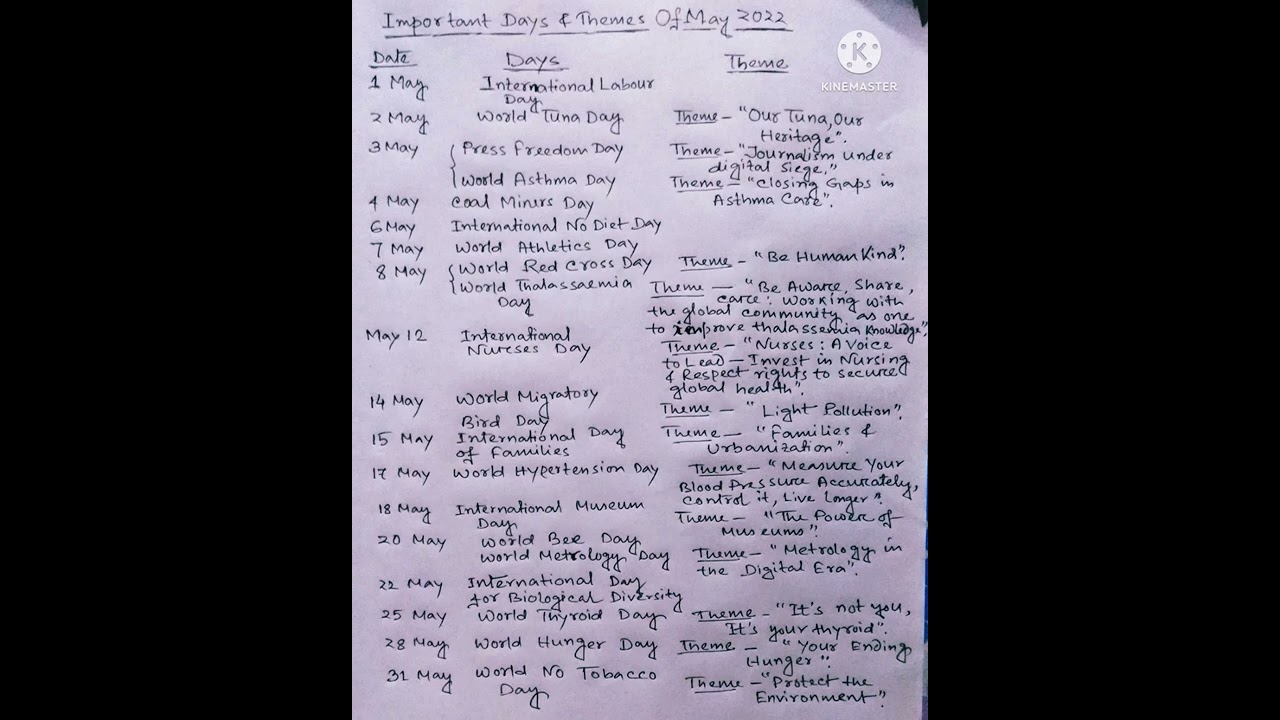 Important Days & Themes Of May 2022
KINEMASTER
Date Days Theme
1 May International Labour
Day
2 May World Tuna Day Theme - "Our Tuna, Our
Heritage".
3 May Press Freedom Day Theme - "Journalism under
digital Siege."
World Asthma Day Theme - "Closing Gaps in
Asthma Care".
4 May Coal Miners Day
6 May International No Diet Day
7 May World Athletics Day
8 May World Red Cross Day Theme - "Be Human Kind".
World Thalassaemia Theme - "Be Aware, Share,
Day care: Working with
the global community as one
to improve thalassemia knowledge".
May 12 International Theme - "Nurses: A Voice
Nurses Day to Lead - Invest in Nursing
& Respect rights to secure
global health".
14 May World Migratory Theme - "Light Pollution".
Bird Day
15 May International Day Theme - "Families &
of Families Urbanization".
17 May World Hypertension Day Theme - "Measure Your
Blood Pressure Accurately,
Control it, Live Longer".
18 May International Museum Theme - "The Power of
Day Museums".
20 May World Bee Day
World Metrology Day Theme - "Metrology in
the Digital Era".
22 May International Day
for Biological Diversity
25 May World Thyroid Day Theme - "It's not you,
It's your thyroid".
28 May World Hunger Day Theme - "Your Ending
Hunger".
31 May World No Tobacco Theme - "Protect the
Day Environment".